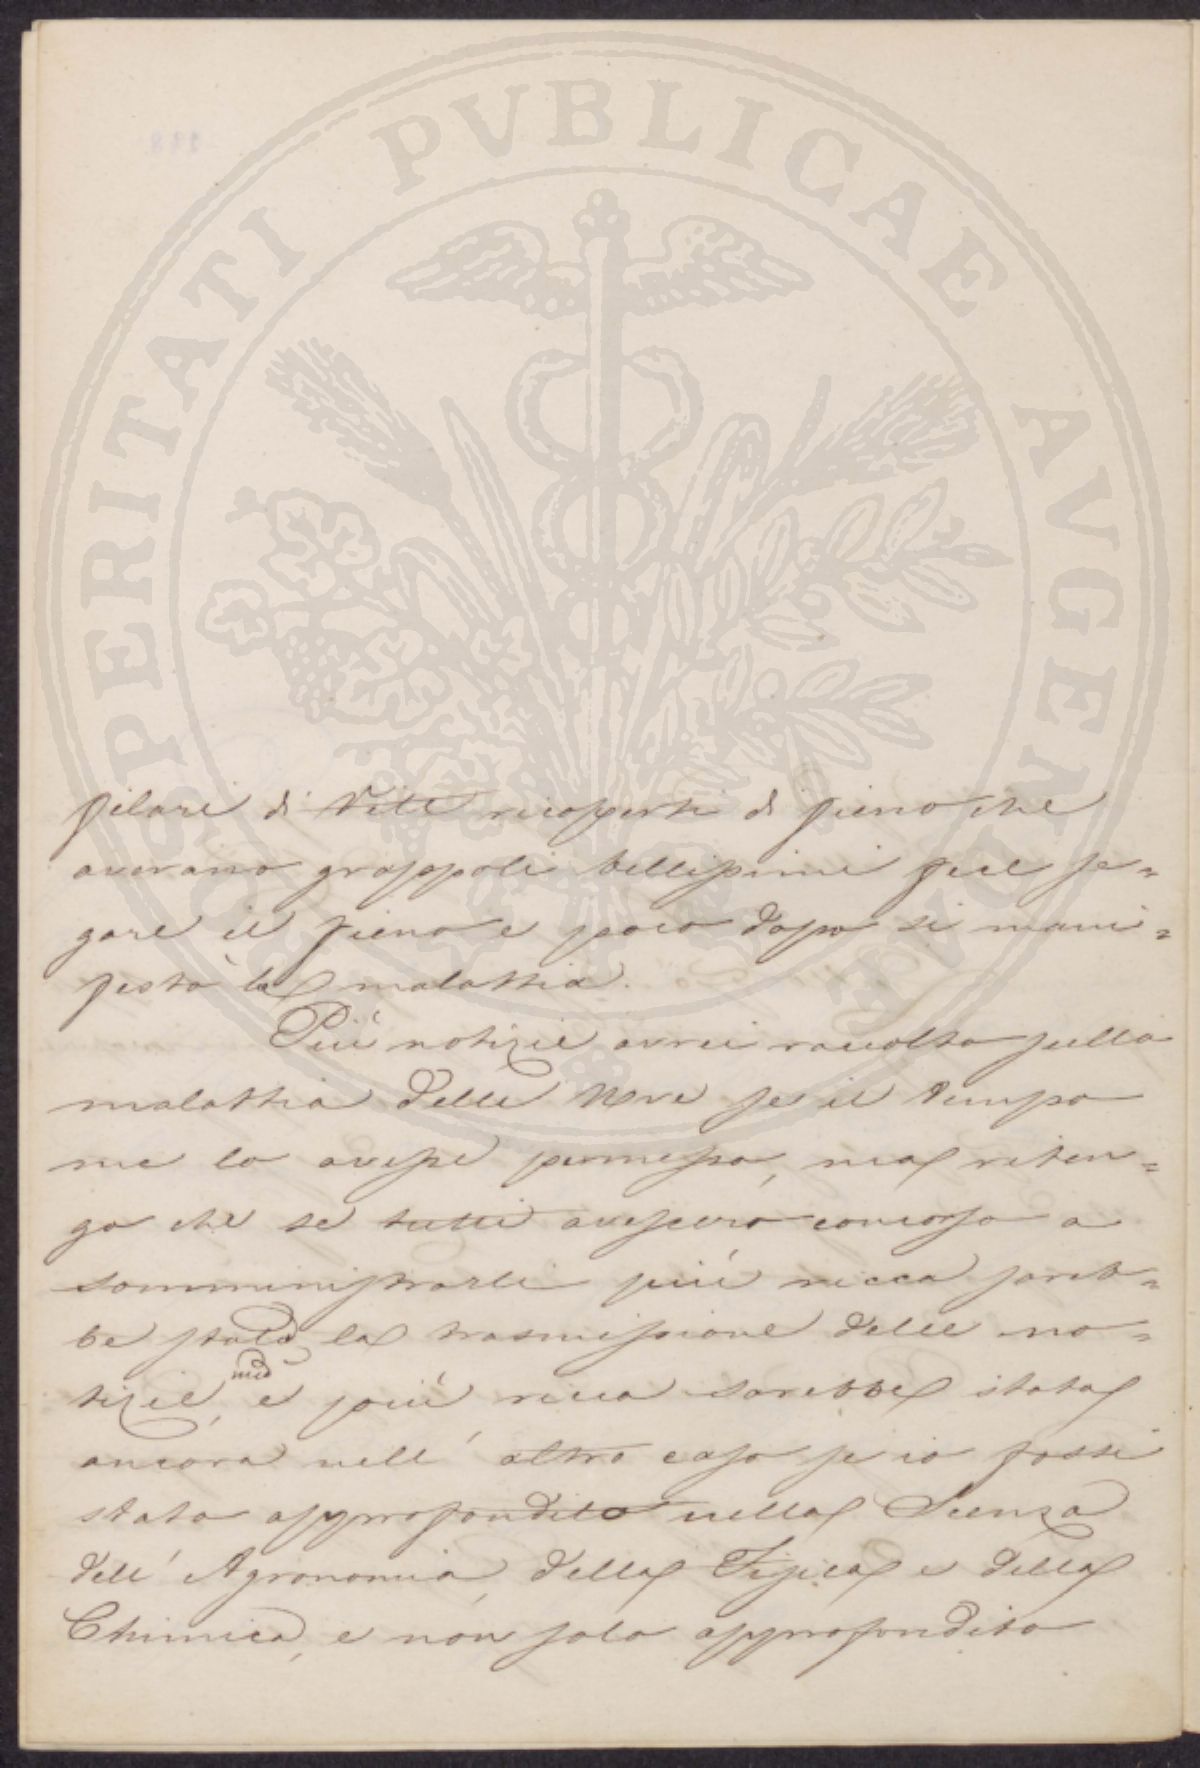 PROSPERITATI PUBLICAE AVGENDAE
filari di Viti ricoperti di fieno che
avevano grappoli bellissimi fece se=
gare il fieno e poco dopo si mani=
festò la malattia.
Più notizie avrei raccolto sulla
malattia delle Uve se il tempo
me lo avesse permesso, ma riten=
go che se tutti avessero concorso a
somministrarli più ricca sareb=
be stata la trasmissione delle no=
tizie, e più ricca sarebbe stata
ancora nell' altro caso se io fossi
stato approfondito nella Scienza
dell' Agronomia, della Fisica e della
Chimica, e non solo approfondito